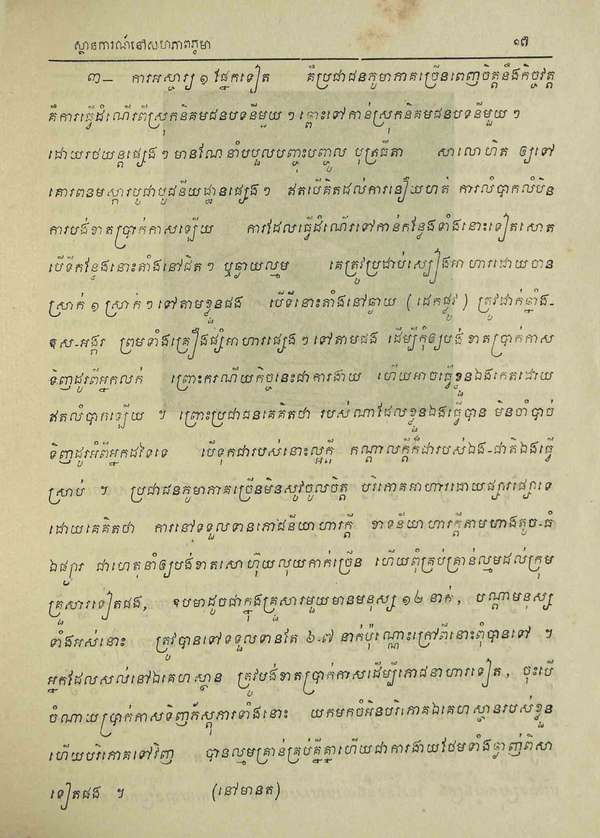 ស្ថានការណ៍នៅសហភាពភូមា ១៧
៣— ការអស្ចារ្យ ១ ផ្នែកទៀត គឺប្រជាជនភូមាភាគច្រើនពេញចិត្តនឹងកិច្ចវត្ត
គឺការធ្វើដំណើរពីស្រុកនិគមជនបទនីមួយ ៗ ឆ្ពោះទៅកាន់ស្រុកនិគមជនបទនីមួយ ៗ
ដោយរថយន្តផ្សេង ៗ មានណែនាំបបួលបញ្ចុះបញ្ចូល បុត្រធីតា សាលោហិត ឲ្យទៅ
គោរពនមស្ការបូជាបូជនីយដ្ឋានផ្សេង ៗ ឥតបើគិតដល់ការនឿយហត់ ការលំបាកលំបិន
ការបង់ខាតប្រាក់កាសឡើយ ការដែលធ្វើដំណើរទៅកាន់កន្លែងទាំងនោះទៀតសោត
បើទីកន្លែងនោះតាំងនៅជិត ៗ ឬឆ្ងាយល្មម គេត្រូវប្រដាប់ស្បៀងអាហារដោយបាន
ស្រាក់ ១ ស្រាក់ ៗ ទៅតាមខ្លួនផង បើទីនោះតាំងនៅឆ្ងាយ ( ដេកផ្លូវ ) ត្រូវដាក់ឆ្នាំង-
ឧស-អង្ករ ព្រមទាំងគ្រឿងផ្សំអាហារផ្សេង ៗ ទៅតាមផង ដើម្បីកុំឲ្យបង់ខាតប្រាក់កាស
ទិញដូរពីអ្នកលក់ ព្រោះករណីយកិច្ចនេះជាការងាយ ហើយអាចធ្វើខ្លួនឯងកេតដោយ
ឥតលំបាកឡើយ ។ ព្រោះប្រជាជនគេគិតថា របស់ណាដែលខ្លួនឯងធ្វើបាន មិនចាំបាច់
ទិញដូរអំពីអ្នកដទៃទេ បើទុកជារបស់នោះល្អក្តី កណ្តាលក្តីក៏ជារបស់ឯង-ជាតិឯងធ្វើ
ស្រាប់ ។ ប្រជាជនភូមាភាគច្រើនមិនសូវចូលចិត្ត បរិភោគអាហារដោយផ្សារផ្សោទេ
ដោយគេគិតថា ការនៅទទួលទានភោជនីយាហារក្តី ខាទនីយាហារក្តីតាមហាងតូច-ធំ
ឯផ្សារ ជាហេតុនាំឲ្យបង់ខាតសោហ៊ុយលុយកាក់ច្រើន ហើយពុំគ្រប់គ្រាន់ល្មមដល់ក្រុម
គ្រួសារទៀតផង, ឧបមាដូចជាក្នុងគ្រួសារមួយមានមនុស្ស ១២ នាក់, បណ្តាមនុស្ស
ទាំងអស់នោះ ត្រូវបានទៅទទួលទានតែ ៦-៧ នាក់ប៉ុណ្ណោះក្រៅពីនោះពុំបានទៅ ។
អ្នកដែលសល់នៅឯគេហស្ថាន ត្រូវបង់ខាតប្រាក់កាសដើម្បីភោជនាហារទៀត, ចុះបើ
ចំណាយប្រាក់កាសទិញភ័ស្តុការទាំងនោះ យកមកចំអិនបរិភោគឯគេហស្ថានរបស់ខ្លួន
ហើយបរិភោគទៅវិញ បានល្មមគ្រាន់គ្រប់គ្នីគ្នាហើយជាការងាយថែមទាំងឆ្ងាញ់ពិសា
ទៀតផង ។ (នៅមានត)